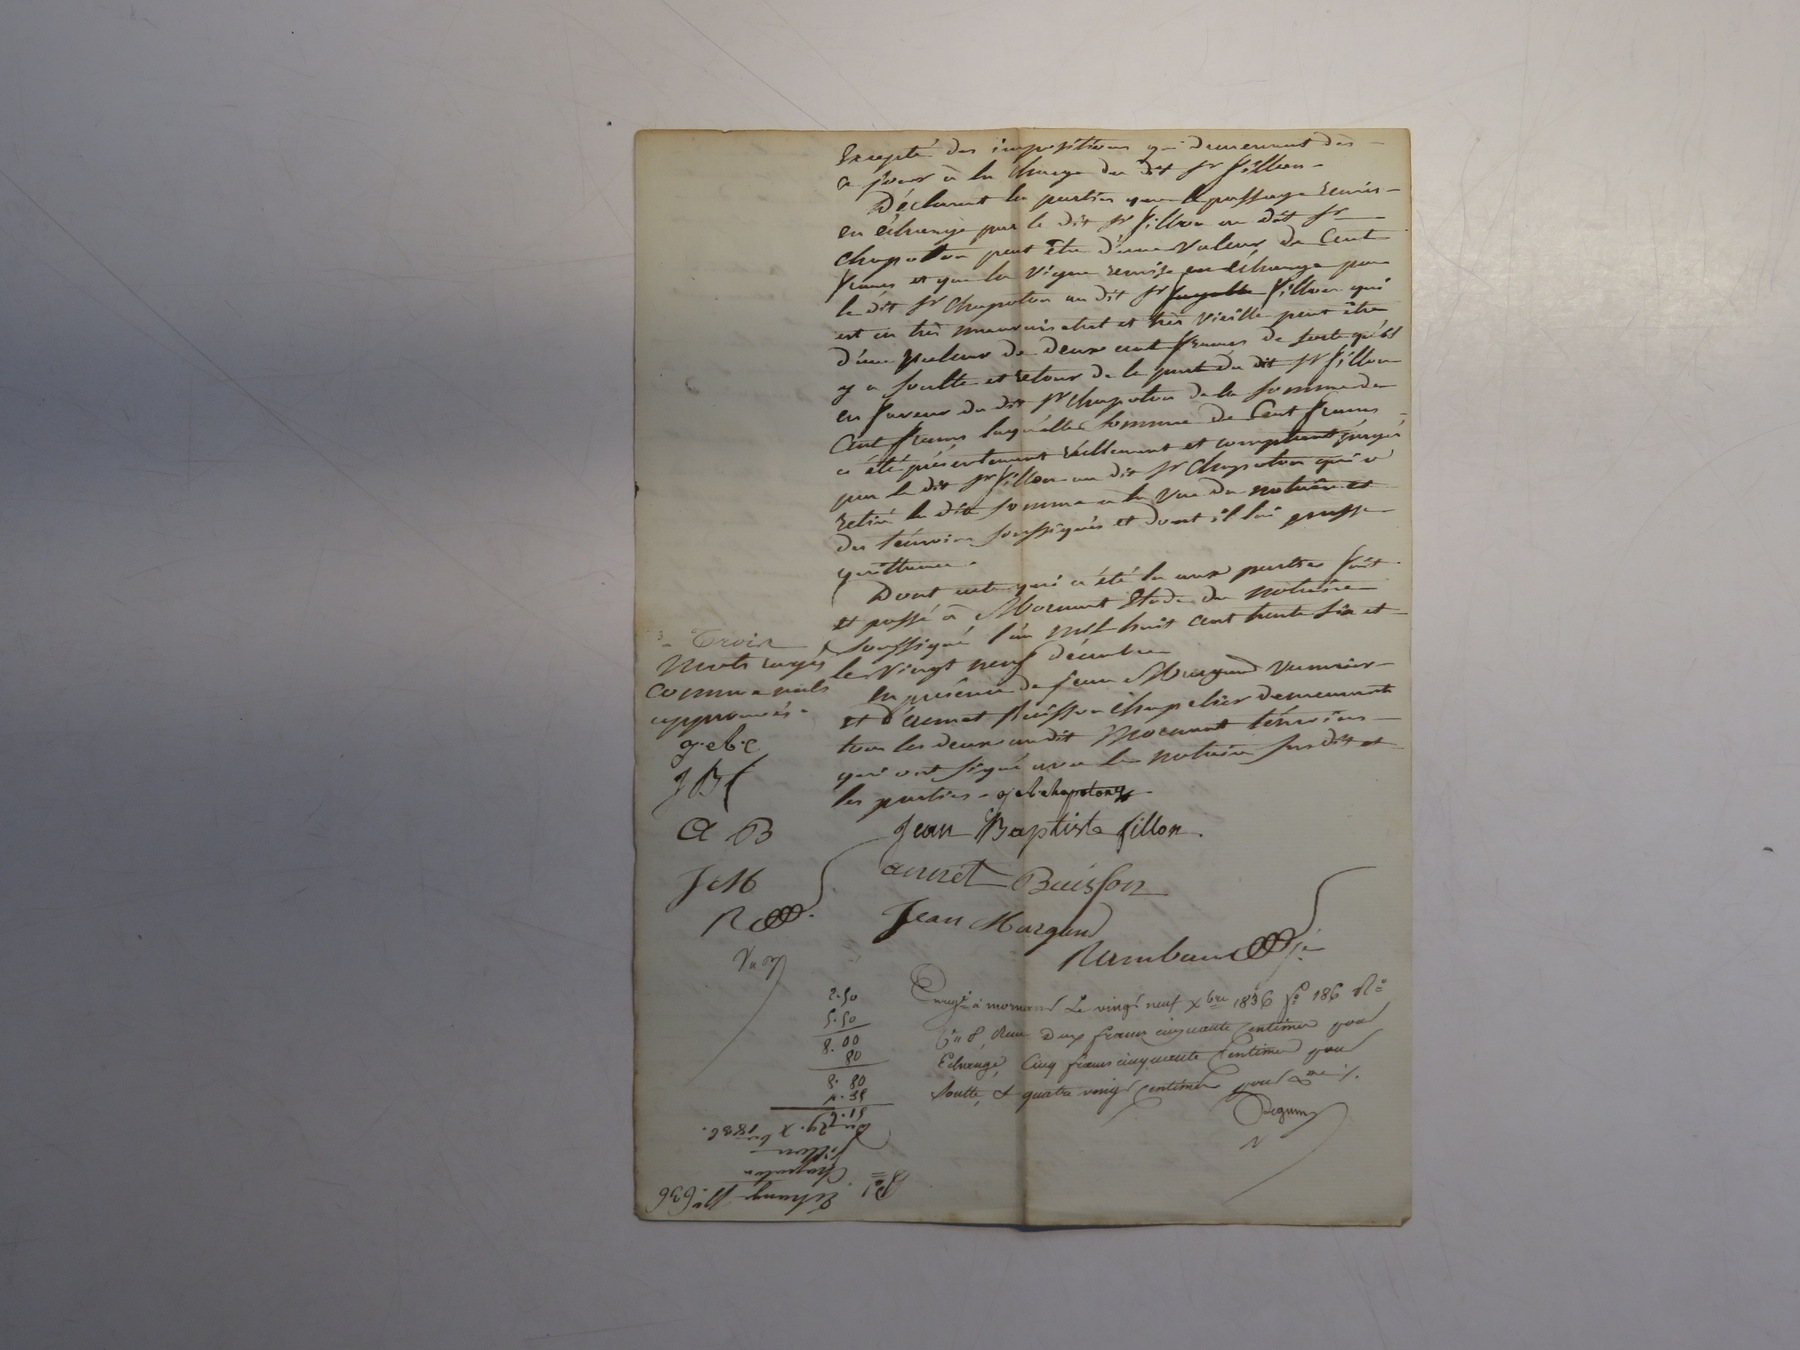 Excepté des impositions qui demeurent dès
a jour à la charge du dit sr fillon.
Déclarent les parties que le passage remis
en échange par le dit sr fillon au dit sr
chapoton peut être d'une valeur de Cent
francs et que la vigne remise en échange par
le dit sr chapoton au dit sr fillon qui
est en très mauvais état et très vieille peut être
d'une valeur de deux cent francs de sorte qu'il
y a soulte et retour de la part du dit sr fillon
en faveur du dit sr chapoton de la somme de
Cent francs laquelle somme de Cent francs
a été présentement réellement et comptant payée
par le dit sr fillon au dit sr chapoton qui a
retiré la dite somme à la vue du notaire et
des témoins soussignés et dont il lui passe
quittance.
Dont acte qui a été lu aux parties fait
et passé à Mornant Etude du notaire
soussigné l'an mil huit cent trente six et
le vingt neuf décembre
En présence de Jean Margand
et d'aimet Buisson chapelier demeurant
tous les deux au dit Mornant témoins
qui ont signé avec le notaire susdit et
les parties. chapoton
Trois
mots rayés
comme nuls
approuvés.
g.e.b.c
J B f
A B
J M
R
Jean Baptiste fillon.
aimet Buisson
Jean Margand
Rambaud
Enregé à mornant Le vingt neuf xbre 1836 fo 186 Ro
Cen 8, Reçu Deux francs cinquante Centimes pour
Echange, Cinq francs cinquante Centimes pour
Soulte, & quatre vingt Centimes pour
2.50
5.50
8.00
80
8.80
29. Xbre 1836.
fillon
Chapoton
Echange No 636